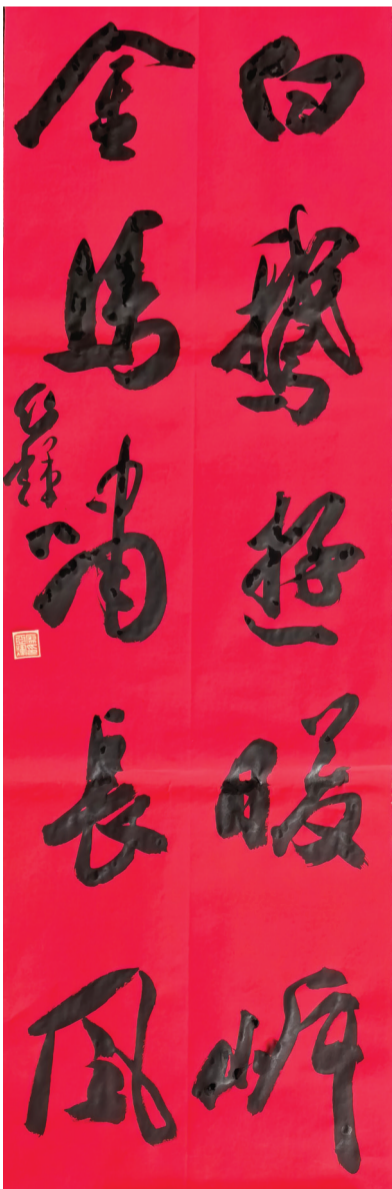 白鵝遊暖岸
金馬嘯長風